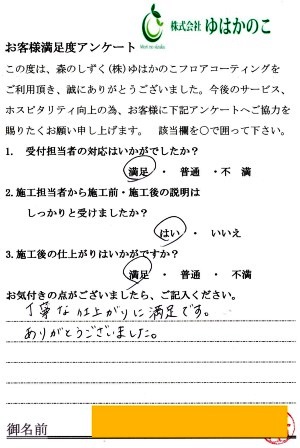 株式会社 ゆはかのこ
Mori no sizuku
お客様満足度アンケート
この度は、森のしずく(株)ゆはかのこフロアコーティングを
ご利用頂き、誠にありがとうございました。今後のサービス、
ホスピタリティ向上の為、お客様に下記アンケートへご協力を
賜りたくお願い申し上げます。 該当欄を○で囲って下さい。
1. 受付担当者の対応はいかがでしたか？
満足 ・ 普通 ・不 満
2.施工担当者から施工前・施工後の説明は
しっかりと受けましたか？
はい ・ いいえ
3.施工後の仕上がりはいかがですか？
満足 ・ 普通 ・ 不満
お気付きの点がございましたら、ご記入ください。
丁寧な仕上がりに満足です。
ありがとうございました。
御名前